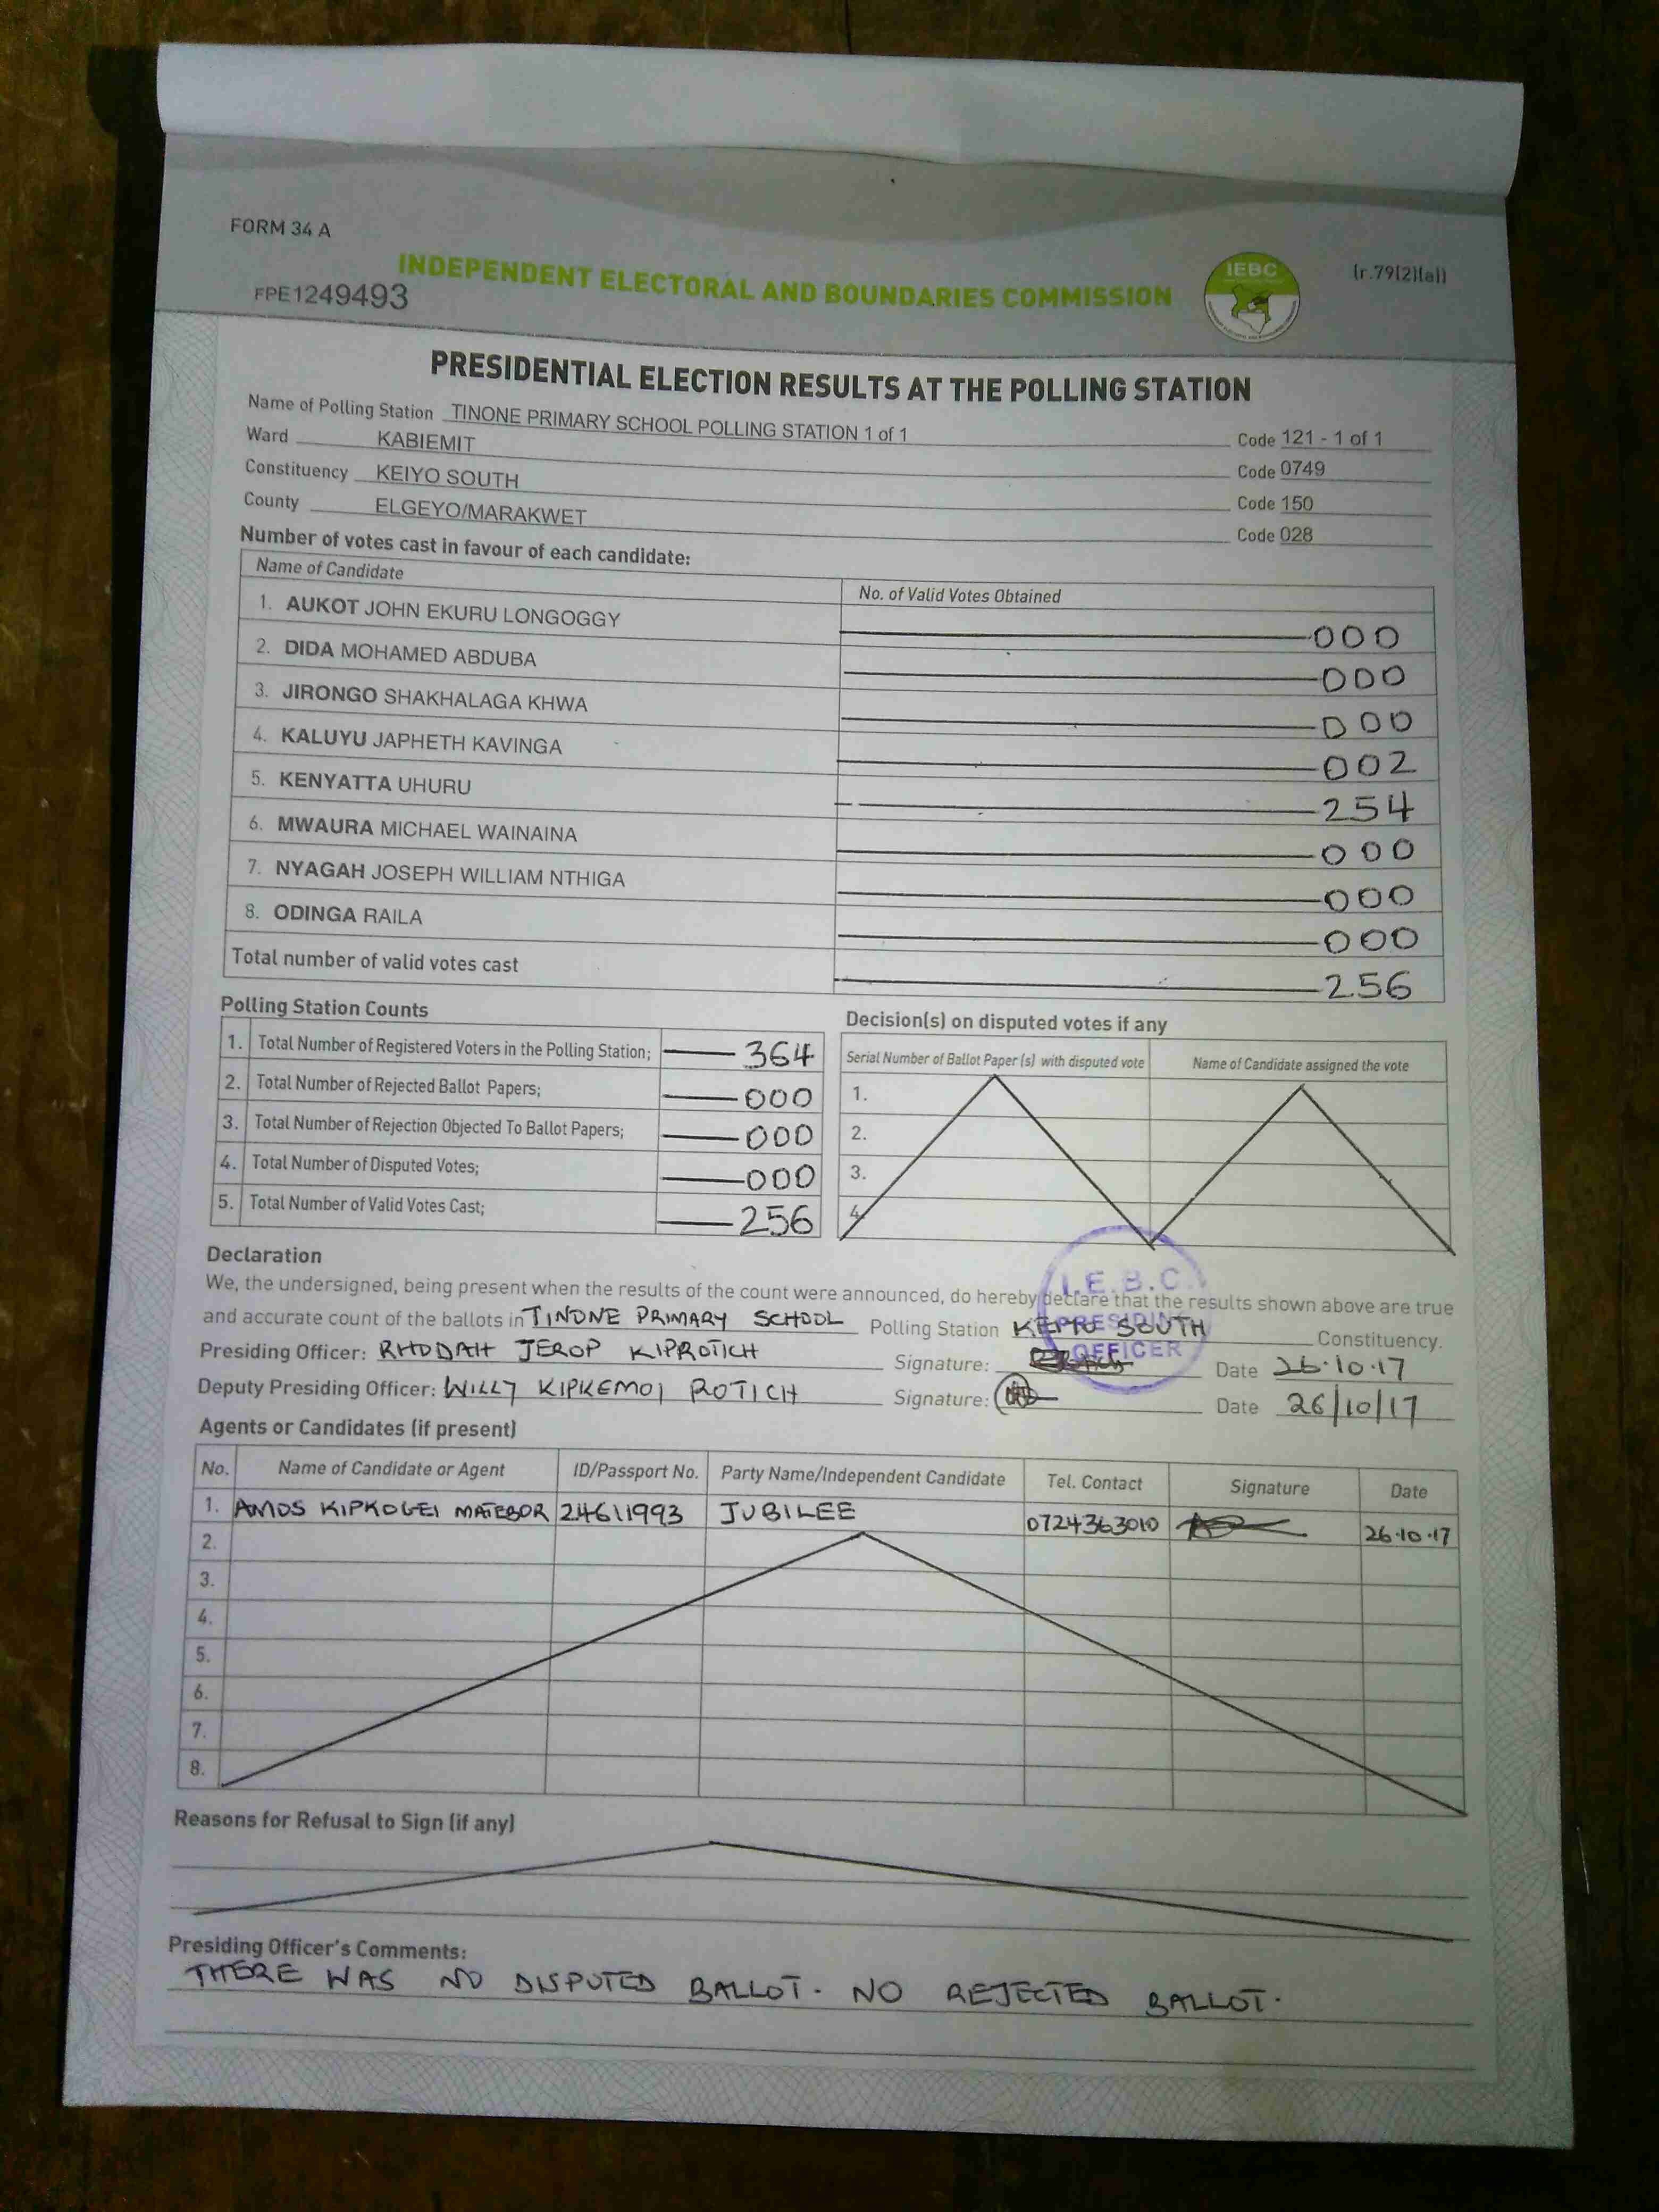 FORM 34 A
(r.79(2)(a))
INDEPENDENT ELECTORAL AND BOUNDARIES COMMISSION
IEBC
FPE1249493
PRESIDENTIAL ELECTION RESULTS AT THE POLLING STATION
Name of Polling Station TINONE PRIMARY SCHOOL POLLING STATION 1 of 1 Code 121 - 1 of 1
Ward KABIEMIT Code 0749
Constituency KEIYO SOUTH Code 150
County ELGEYO/MARAKWET Code 028
Number of votes cast in favour of each candidate:
Name of Candidate No. of Valid Votes Obtained
1. AUKOT JOHN EKURU LONGOGGY 000
2. DIDA MOHAMED ABDUBA 000
3. JIRONGO SHAKHALAGA KHWA 000
4. KALUYU JAPHETH KAVINGA 002
5. KENYATTA UHURU 254
6. MWAURA MICHAEL WAINAINA 000
7. NYAGAH JOSEPH WILLIAM NTHIGA 000
8. ODINGA RAILA 000
Total number of valid votes cast 256
Polling Station Counts
1. Total Number of Registered Voters in the Polling Station; 364
2. Total Number of Rejected Ballot Papers; 000
3. Total Number of Rejection Objected To Ballot Papers; 000
4. Total Number of Disputed Votes; 000
5. Total Number of Valid Votes Cast; 256
Decision(s) on disputed votes if any
Serial Number of Ballot Paper (s) with disputed vote Name of Candidate assigned the vote
1.
2.
3.
4.
Declaration
We, the undersigned, being present when the results of the count were announced, do hereby declare that the results shown above are true
and accurate count of the ballots in TINONE PRIMARY SCHOOL Polling Station KEIYO SOUTH Constituency.
I.E.B.C.
PRESIDING
OFFICER
Presiding Officer: RHODAH JEROP KIPROTICH Signature: Date 26.10.17
Deputy Presiding Officer: WILLY KIPKEMOI ROTICH Signature: Date 26/10/17
Agents or Candidates (if present)
No. Name of Candidate or Agent ID/Passport No. Party Name/Independent Candidate Tel. Contact Signature Date
1. AMOS KIPKOGEI MATEBOR 24611993 JUBILEE 0724363010 26.10.17
2.
3.
4.
5.
6.
7.
8.
Reasons for Refusal to Sign (if any)
Presiding Officer's Comments:
THERE WAS NO DISPUTED BALLOT. NO REJECTED BALLOT.